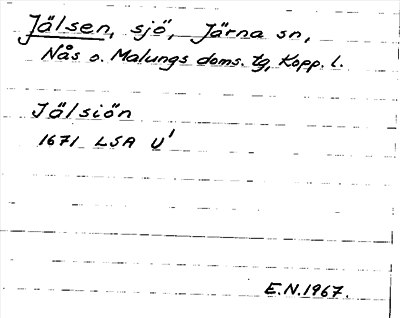 Jälsen, sjö, Järna sn,
Nås o. Malungs doms. tg, Kopp. l.
Jälsiön
1671 LSA U'
E.N.1967.